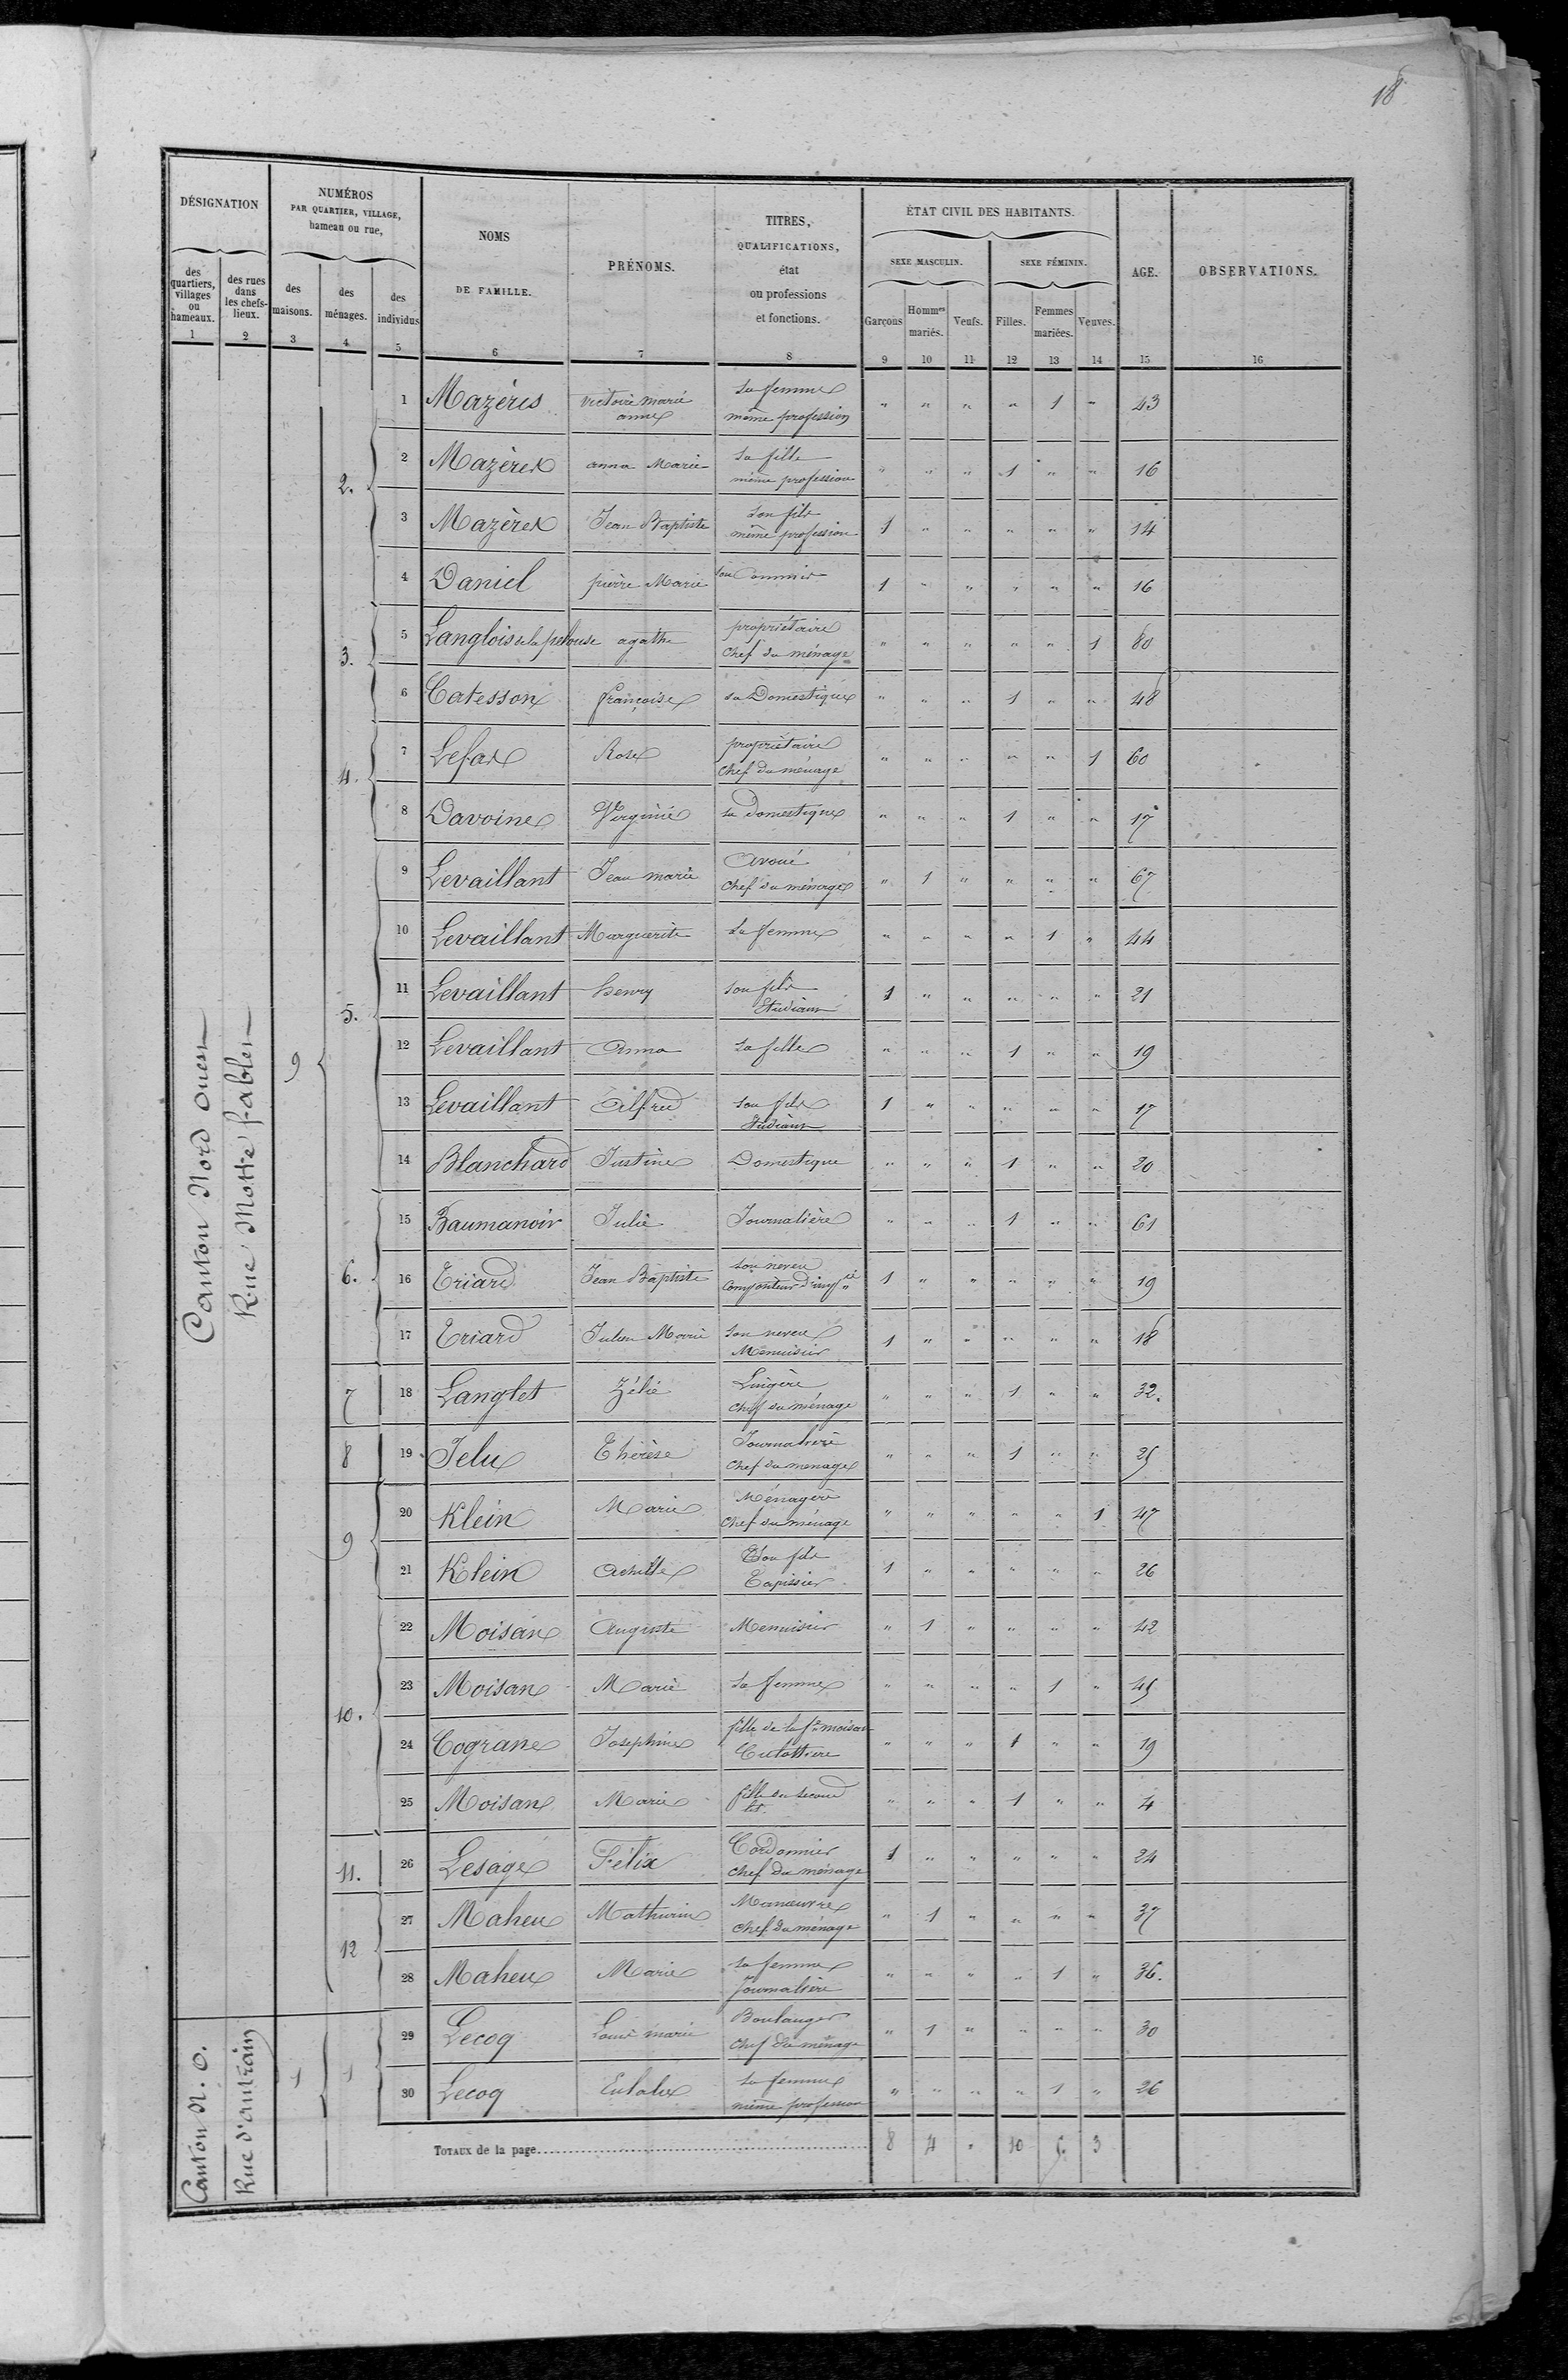 18
DÉSIGNATION
NUMÉROS
PAR QUARTIER, VILLAGE,
hameau ou rue,
NOMS
DE FAMILLE.
PRÉNOMS.
TITRES,
QUALIFICATIONS,
état
ou professions
et fonctions.
ÉTAT CIVIL DES HABITANTS.
SEXE MASCULIN.
SEXE FÉMININ.
AGE.
OBSERVATIONS.
des quartiers, villages ou hameaux.
des rues dans les chefs-lieux.
des maisons.
des ménages.
des individus
Garçons
Hommes mariés.
Veufs.
Filles.
Femmes mariées.
Veuves.
1 2 3 4 5 6 7 8 9 10 11 12 13 14 15 16
Canton Nord Ouest
Rue Motte fablet
9
1 Mazères victoire marie anne sa femme même profession " " " " 1 " 43
2. 2 Mazères anna Marie sa fille même profession " " " 1 " " 16
3 Mazères Jean Baptiste son fils même profession 1 " " " " " 14
4 Daniel pierre Marie son Commis 1 " " " " " 16
3. 5 Langlois de la pelouse agathe propriétaire Chef du ménage " " " " " 1 80
6 Catesson françoise sa Domestique " " " 1 " " 48
4. 7 Lefas Rose propriétaire Chef du ménage " " " " " 1 60
8 Davoine Virginie sa domestique " " " 1 " " 17
5. 9 Levaillant Jean marie Avoué Chef du ménage " 1 " " " " 67
10 Levaillant Marguerite sa femme " " " " 1 " 44
11 Levaillant henry son fils Etudiant 1 " " " " " 21
12 Levaillant Anna sa fille " " " 1 " " 19
13 Levaillant Alfred son fils Etudiant 1 " " " " " 17
14 Blanchard Justine Domestique " " " 1 " " 20
6. 15 Baumanoir Julie Journalière " " " 1 " " 61
16 Triard Jean Baptiste son neveu Compositeur d'imp 1 " " " " " 19
17 Triard Julien Marie son neveu Menuisier 1 " " " " " 18
7 18 Langlet Zélie Lingère Chef du ménage " " " 1 " " 32.
8 19 Jelu Thérèse Journalière Chef du menage " " " 1 " " 25
9 20 Klein Marie Ménagère Chef du ménage " " " " " 1 47
21 Klein Achille Son fils Tapissier 1 " " " " " 26
10. 22 Moisan Auguste Menuisier " 1 " " " " 42
23 Moisan Marie sa femme " " " " 1 " 45
24 Cograne Josephine fille de la fe moisan Culottiere " " " 1 " " 19
25 Moisan Marie fille du second lit. " " " 1 " " 4
11. 26 Lesage Félix Cordonnier Chef du ménage 1 " " " " " 24
12 27 Maheu Mathurin Manœuvre Chef du ménage " 1 " " " " 37
28 Maheu Marie sa femme Journalière " " " " 1 " 36.
Canton N. O.
Rue d'antrain
1 1 29 Lecoq Louis marie Boulanger Chef du ménage " 1 " " " " 30
30 Lecoq Eulalie sa femme même profession " " " " 1 " 26
TOTAUX de la page 8 4 " 10 5 3